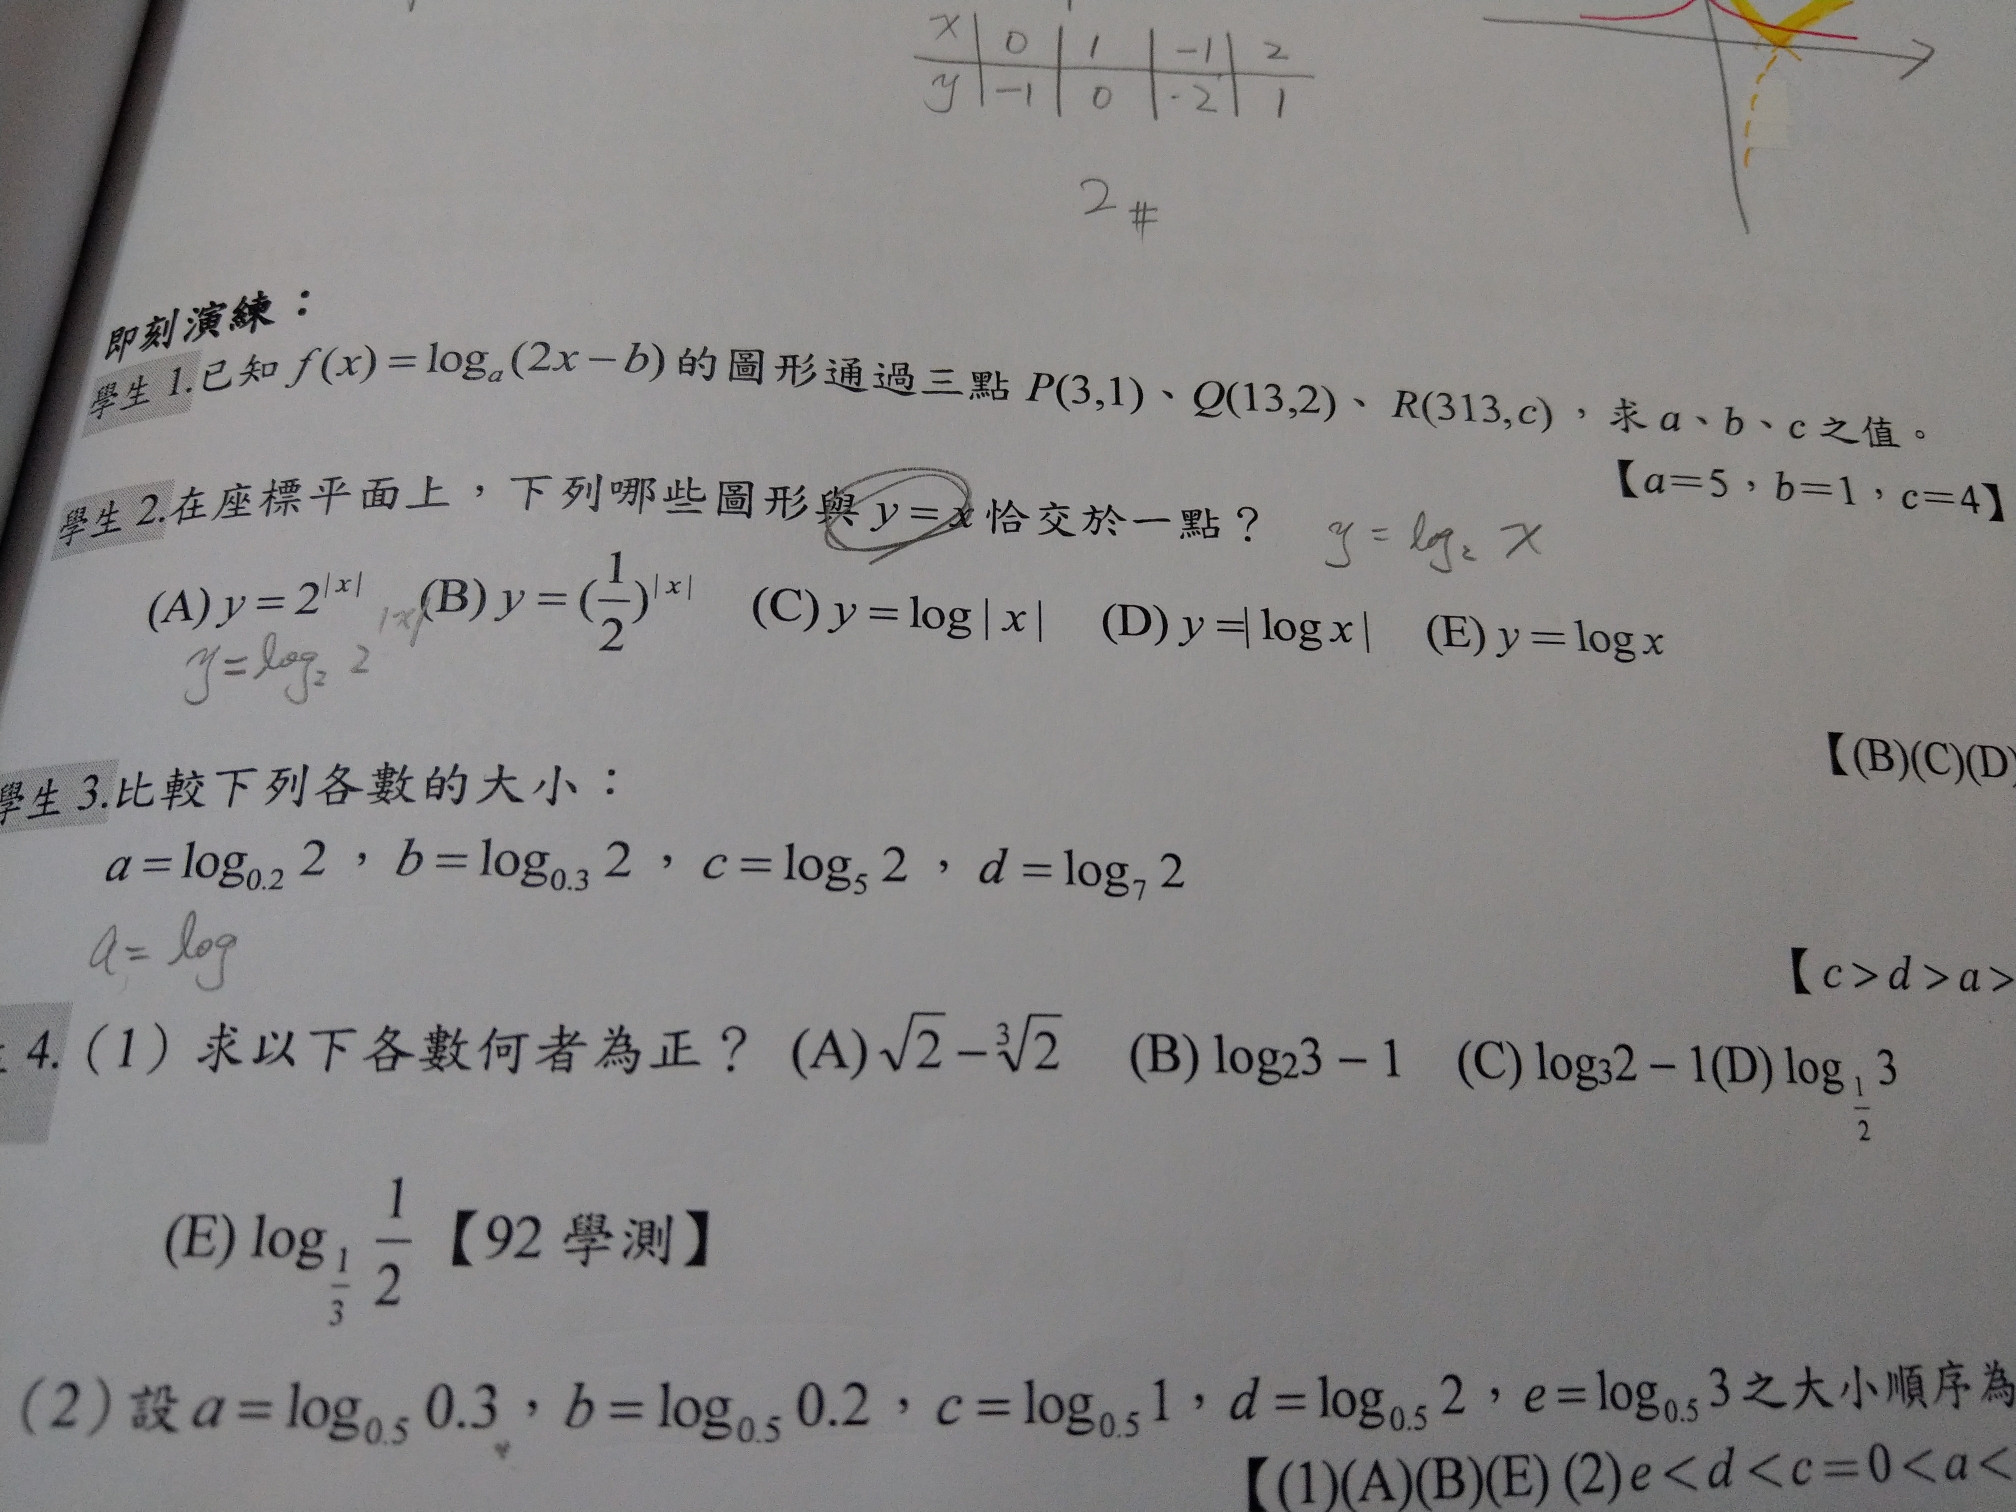 x 0 1 -1 2
y -1 0 -2 1
2 #
即刻演練：
學生 1.已知 f(x)=logₐ(2x−b) 的圖形通過三點 P(3,1)、Q(13,2)、R(313,c)，求 a、b、c 之值。
【a=5，b=1，c=4】
學生 2.在座標平面上，下列哪些圖形與 y=x 恰交於一點？ y = log₂ x
(A) y=2^|x| (B) y=(1/2)^|x| (C) y=log|x| (D) y=|log x| (E) y=log x
y=log₂ 2^|x|
【(B)(C)(D)
學生 3.比較下列各數的大小：
a=log₀.₂ 2，b=log₀.₃ 2，c=log₅ 2，d=log₇ 2
a= log
【c>d>a>
4.（1）求以下各數何者為正？ (A) √2−∛2 (B) log₂3−1 (C) log₃2−1(D) log_{1/2} 3
(E) log_{1/3} 1/2 【92 學測】
（2）設 a=log₀.₅ 0.3，b=log₀.₅ 0.2，c=log₀.₅ 1，d=log₀.₅ 2，e=log₀.₅ 3 之大小順序為
【(1)(A)(B)(E) (2) e<d<c=0<a<